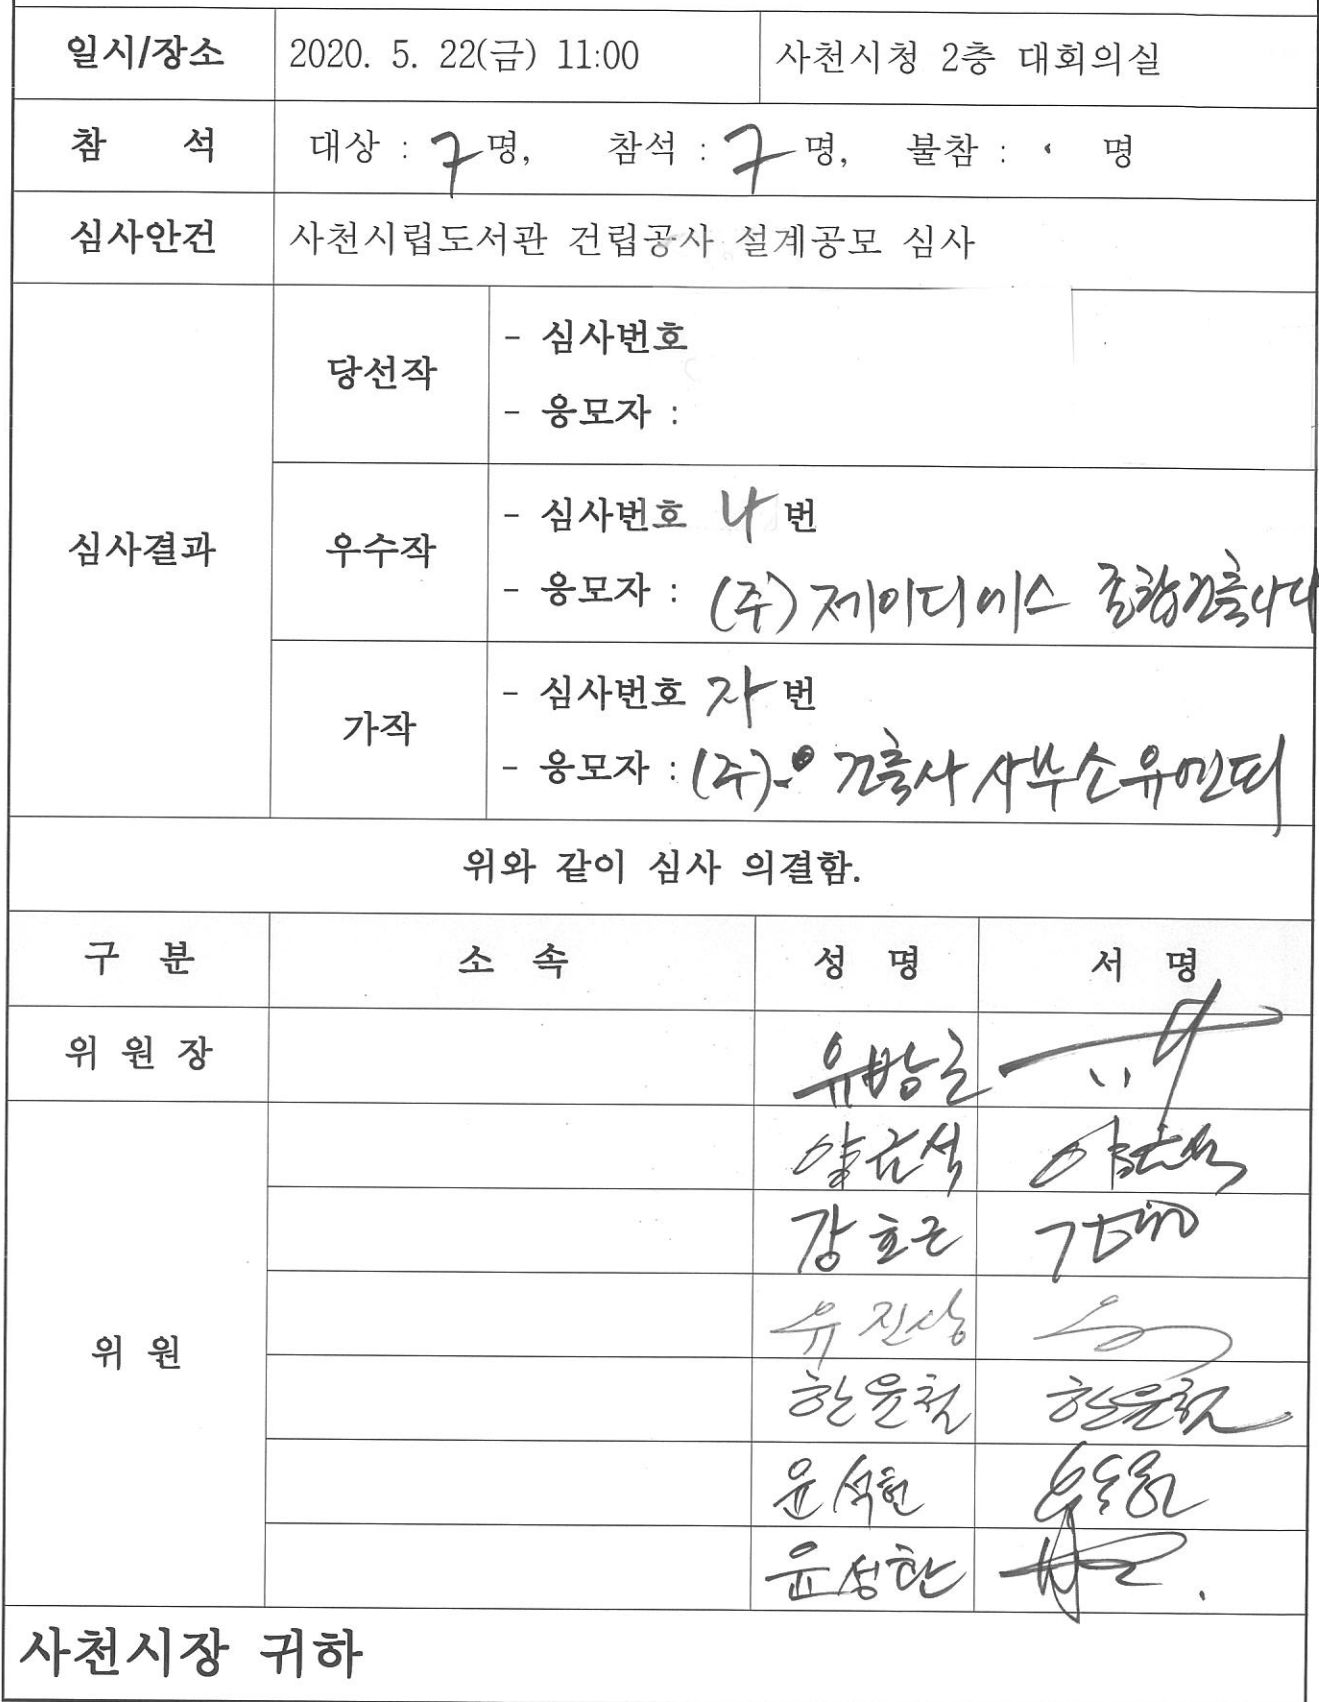 일시/장소 2020. 5. 22(금) 11:00 사천시청 2층 대회의실
참 석 대상 : 7명, 참석 : 7명, 불참 : · 명
심사안건 사천시립도서관 건립공사 설계공모 심사
심사결과
당선작
- 심사번호
- 응모자 :
우수작
- 심사번호 나 번
- 응모자 : (주)제이디에스 종합건축사사
가작
- 심사번호 자 번
- 응모자 : (주) 건축사사무소유앤띠
위와 같이 심사 의결함.
구 분 소 속 성 명 서 명
위 원 장 유방근
위 원
양금석
강호근
유진상
한윤철 한윤철
윤석헌
윤성환
사천시장 귀하